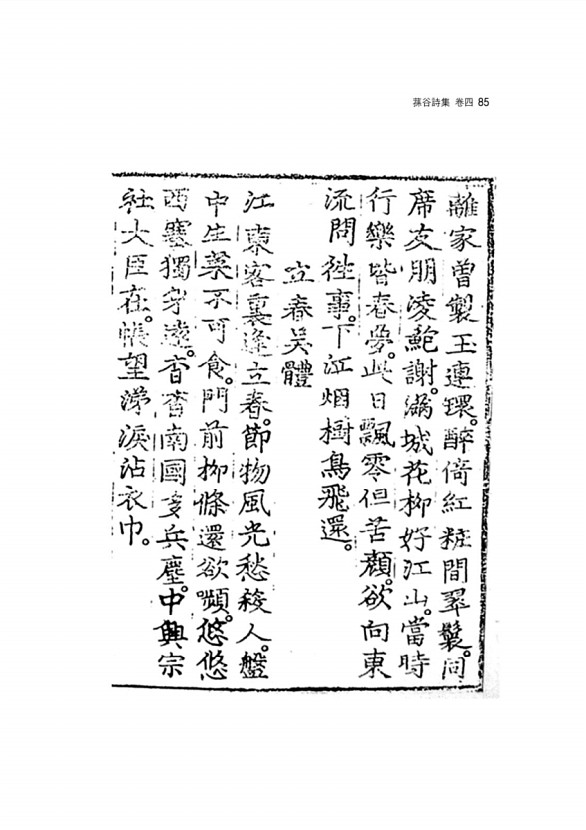 蓀谷詩集 卷四 85
離家曾製玉連環。醉倚紅粧間翠鬟。同
席友朋凌鮑謝。滿城花柳好江山。當時
行樂皆春夢。此日飄零但苦顏。欲向東
流問徃事。下江烟樹鳥飛還。
立春吳體
江東客裏逢立春。節物風光愁殺人。盤
中生菜不可食。門前柳條還欲嚬。悠悠
西塞獨身遠。杳杳南國多兵塵。中興宗
社大臣在。悵望涕淚沾衣巾。